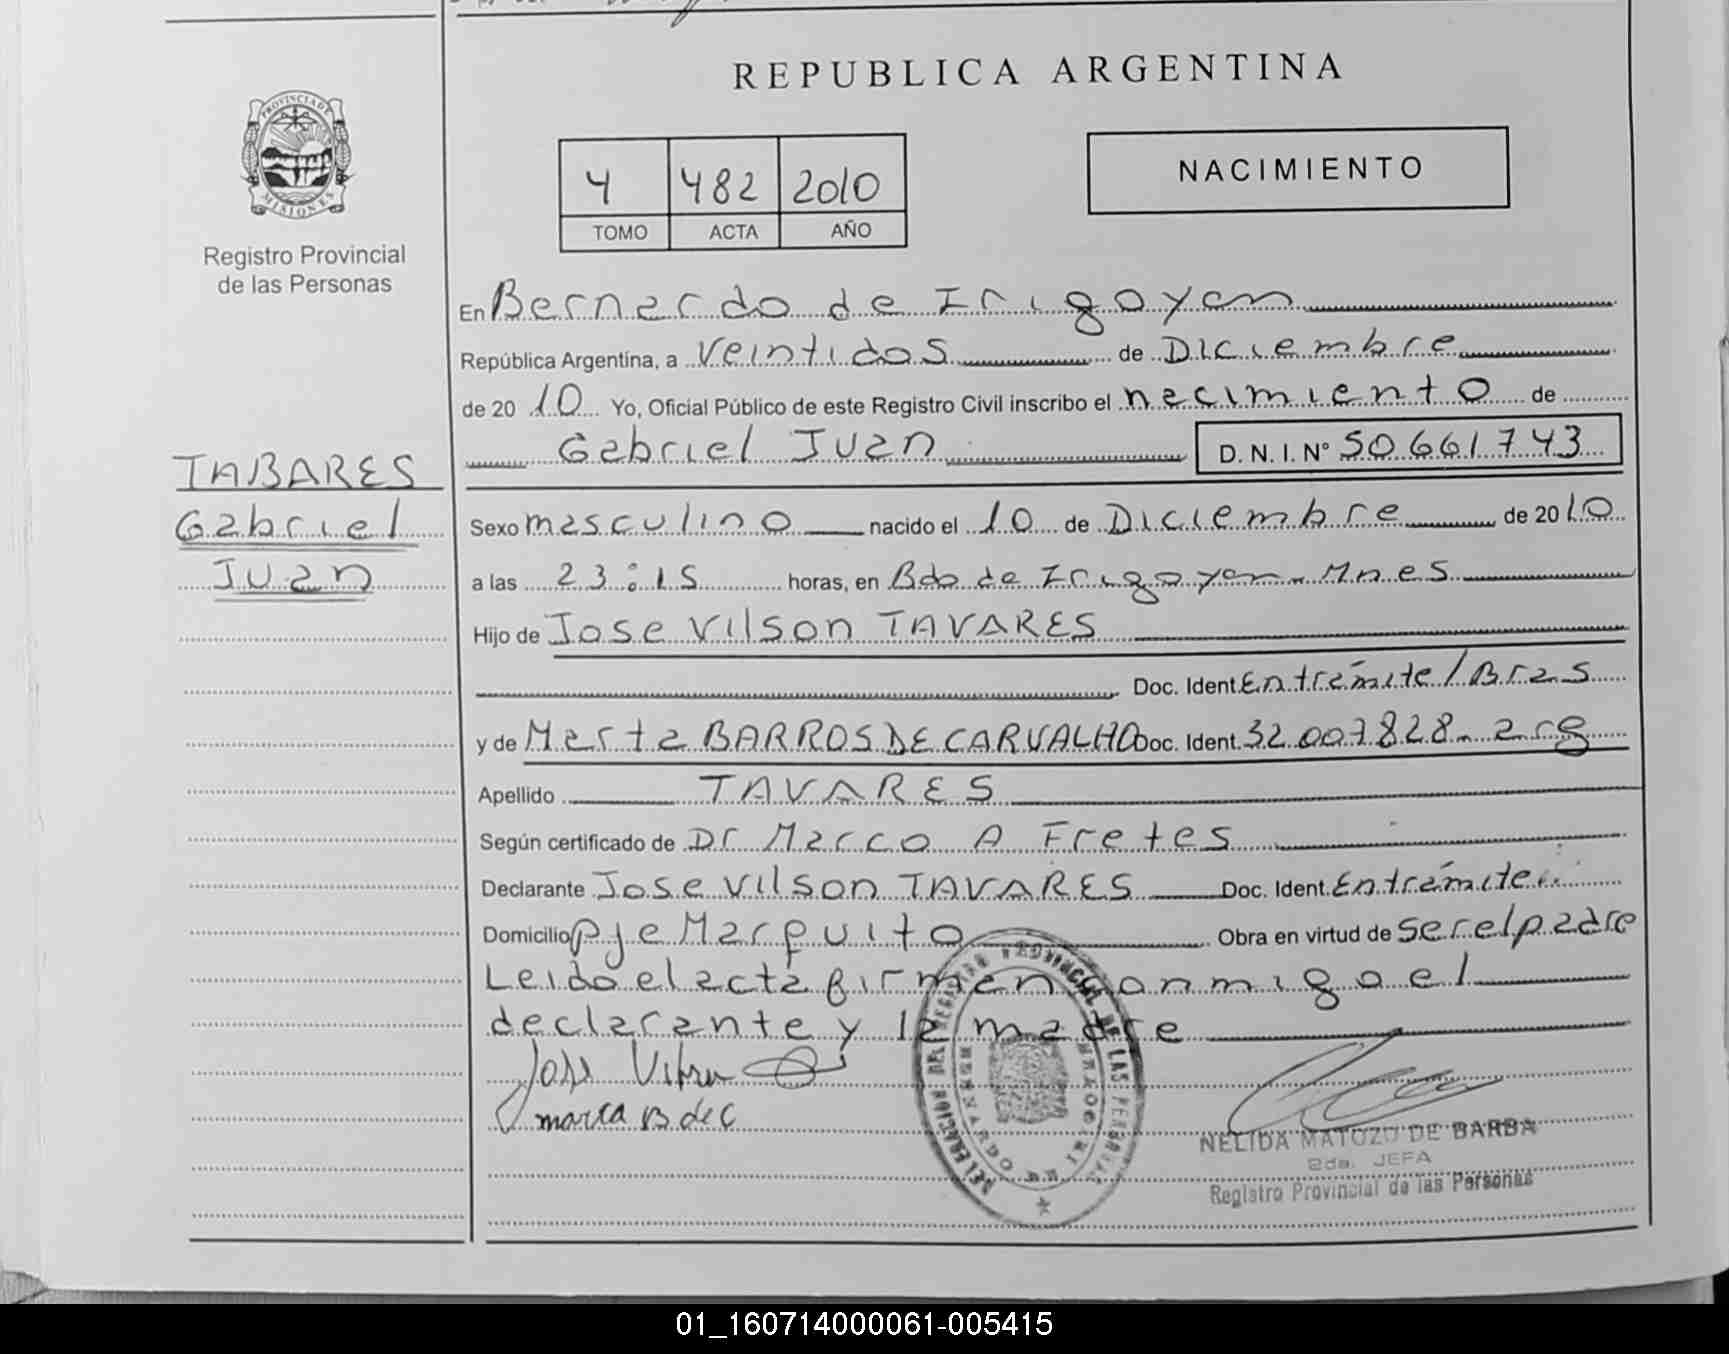 REPUBLICA ARGENTINA
PROVINCIA DE MISIONES
Registro Provincial
de las Personas
4 482 2010
TOMO ACTA AÑO
NACIMIENTO
En Bernardo de Irigoyen
República Argentina, a Veintidos de Diciembre
de 20 10 Yo, Oficial Público de este Registro Civil inscribo el nacimiento de
Gabriel Juan D. N. I. Nº 50661743
TABARES
Gabriel
Juan
Sexo masculino nacido el 10 de Diciembre de 20 10
a las 23:15 horas, en Bdo de Irigoyen - Mnes
Hijo de Jose Vilson TAVARES
Doc. Ident. En trámite / Bras
y de Marta BARROS DE CARVALHO Doc. Ident. 32.007828 - arg
Apellido TAVARES
Según certificado de Dr Marco A Fretes
Declarante Jose Vilson TAVARES Doc. Ident. En trámite
Domicilio Pje Marquito Obra en virtud de ser el padre
Leido el acta firman conmigo el
declarante y la madre
marta B dec
DELEGACION DEL REGISTRO PROVINCIAL DE LAS PERSONAS
NELIDA MATOZO DE BARBA
2da. JEFA
Registro Provincial de las Personas
01_160714000061-005415